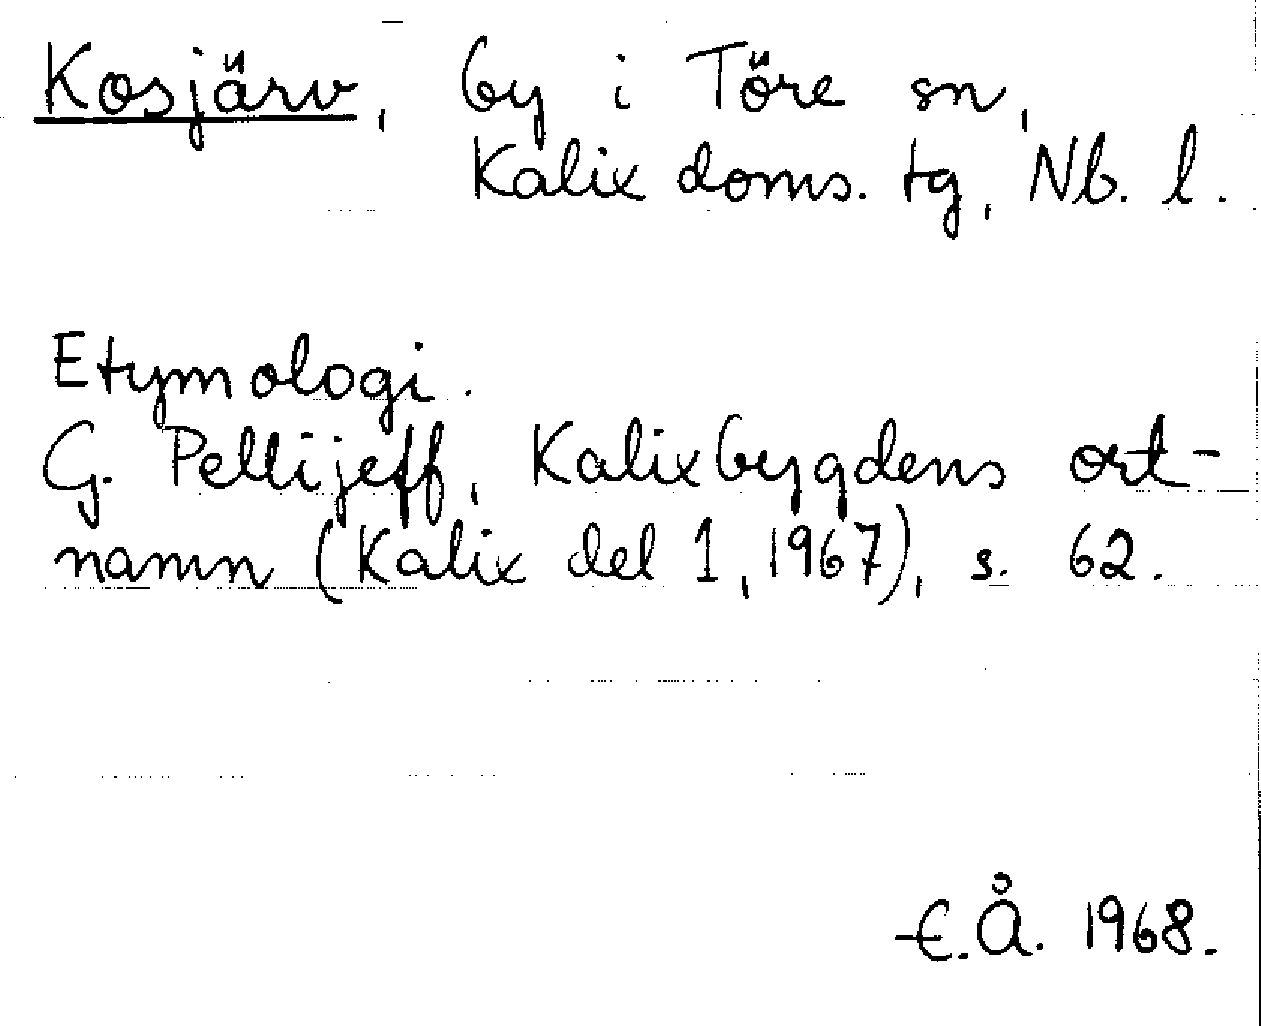 Kosjärv, by i Töre sn,
Kalix doms. tg, Nb. l.
Etymologi.
G. Pellijeff, Kalixbygdens ort-
namn (Kalix del 1, 1967), s. 62.
E.Å. 1968.